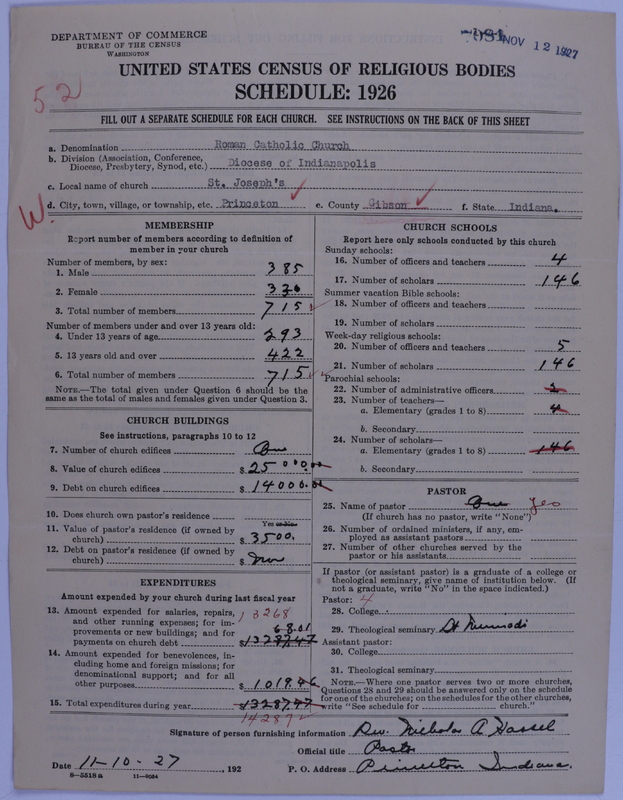 DEPARTMENT OF COMMERCE
BUREAU OF THE CENSUS
WASHINGTON
NOV 12 1927
UNITED STATES CENSUS OF RELIGIOUS BODIES
SCHEDULE: 1926
52
FILL OUT A SEPARATE SCHEDULE FOR EACH CHURCH. SEE INSTRUCTIONS ON THE BACK OF THIS SHEET
a. Denomination Roman Catholic Church
b. Division (Association, Conference, Diocese, Presbytery, Synod, etc.) Diocese of Indianapolis
c. Local name of church St. Joseph's
d. City, town, village, or township, etc. Princeton e. County Gibson f. State Indiana.
W.
MEMBERSHIP
Report number of members according to definition of
member in your church
Number of members, by sex:
1. Male 385
2. Female 330
3. Total number of members 715
Number of members under and over 13 years old:
4. Under 13 years of age 293
5. 13 years old and over 422
6. Total number of members 715
NOTE.—The total given under Question 6 should be the
same as the total of males and females given under Question 3.
CHURCH BUILDINGS
See instructions, paragraphs 10 to 12
7. Number of church edifices One
8. Value of church edifices $25000.00
9. Debt on church edifices $14000.00
10. Does church own pastor's residence
Yes or No
11. Value of pastor's residence (if owned by
church) $3500.
12. Debt on pastor's residence (if owned by
church) $
EXPENDITURES
Amount expended by your church during last fiscal year
13. Amount expended for salaries, repairs, 13268
and other running expenses; for im-
provements or new buildings; and for 68.01
payments on church debt $13287.47
14. Amount expended for benevolences, in-
cluding home and foreign missions; for
denominational support; and for all
other purposes $1019.46
15. Total expenditures during year $13287.47
14287
CHURCH SCHOOLS
Report here only schools conducted by this church
Sunday schools:
16. Number of officers and teachers 4
17. Number of scholars 146
Summer vacation Bible schools:
18. Number of officers and teachers
19. Number of scholars
Week-day religious schools:
20. Number of officers and teachers 5
21. Number of scholars 146
Parochial schools:
22. Number of administrative officers 1
23. Number of teachers—
a. Elementary (grades 1 to 8) 4
b. Secondary
24. Number of scholars—
a. Elementary (grades 1 to 8) 146
b. Secondary
PASTOR
25. Name of pastor One yes
(If church has no pastor, write "None")
26. Number of ordained ministers, if any, em-
ployed as assistant pastors
27. Number of other churches served by the
pastor or his assistants
If pastor (or assistant pastor) is a graduate of a college or
theological seminary, give name of institution below. (If
not a graduate, write "No" in the space indicated.)
Pastor: 4
28. College
29. Theological seminary St
Assistant pastor:
30. College
31. Theological seminary
NOTE.—Where one pastor serves two or more churches,
Questions 28 and 29 should be answered only on the schedule
for one of the churches; on the schedules for the other churches,
write "See schedule for church."
Signature of person furnishing information Rev. Nicholas A Hassel
Official title Pastor
Date 11-10-27, 192 P. O. Address Princeton Indiana.
8—5518 a 11—9084